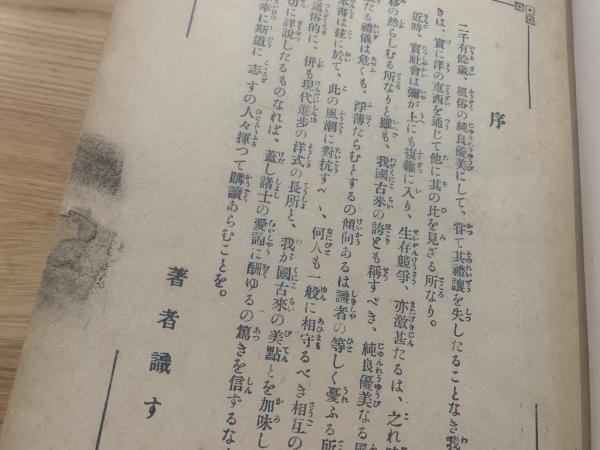 序
二千有餘歳、風俗の純良優美にして、甞て其禮讓を失したることなき我
きは、實に洋の東西を通じて他に其の比を見ざる所なり。
近時、實社會は彌が上にも複雜に入り、生存競爭、亦激甚たるは、之れ
移の然らしむる所なりと雖も、我國古來の誇とも稱すべき、純良優美なる風
たる禮儀は危くも、浮薄たらむとするの傾向あるは識者の等しく憂ふる所
本書は玆に於て、此の風潮に對抗すべく、何人も一般に相守るべき相互の
通俗的に、併も現代進步の洋式の長所と、我が國古來の美點とを加味し
切に詳說したるものなれば、蓋し諸士の愛讀に酬ゆるの篤きを信ずるな
幸に斯道に志すの人々揮つて購讀あらむことを。
著者識す